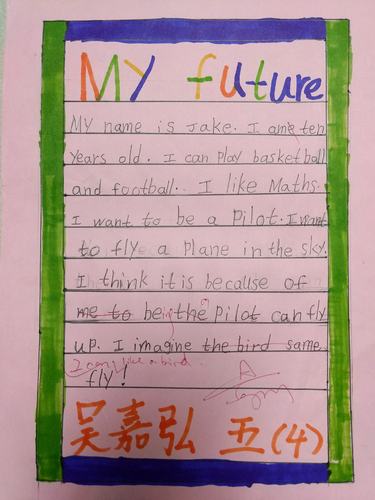 My future
My name is Jake. I am ten
years old. I can play basketball
and football. I like Maths.
I want to be a pilot. I want
to fly a plane in the sky.
I think it is because of
me to being the pilot can fly
up. I imagine the bird same
I can like a bird.
fly!
A
吴嘉弘 五(4)